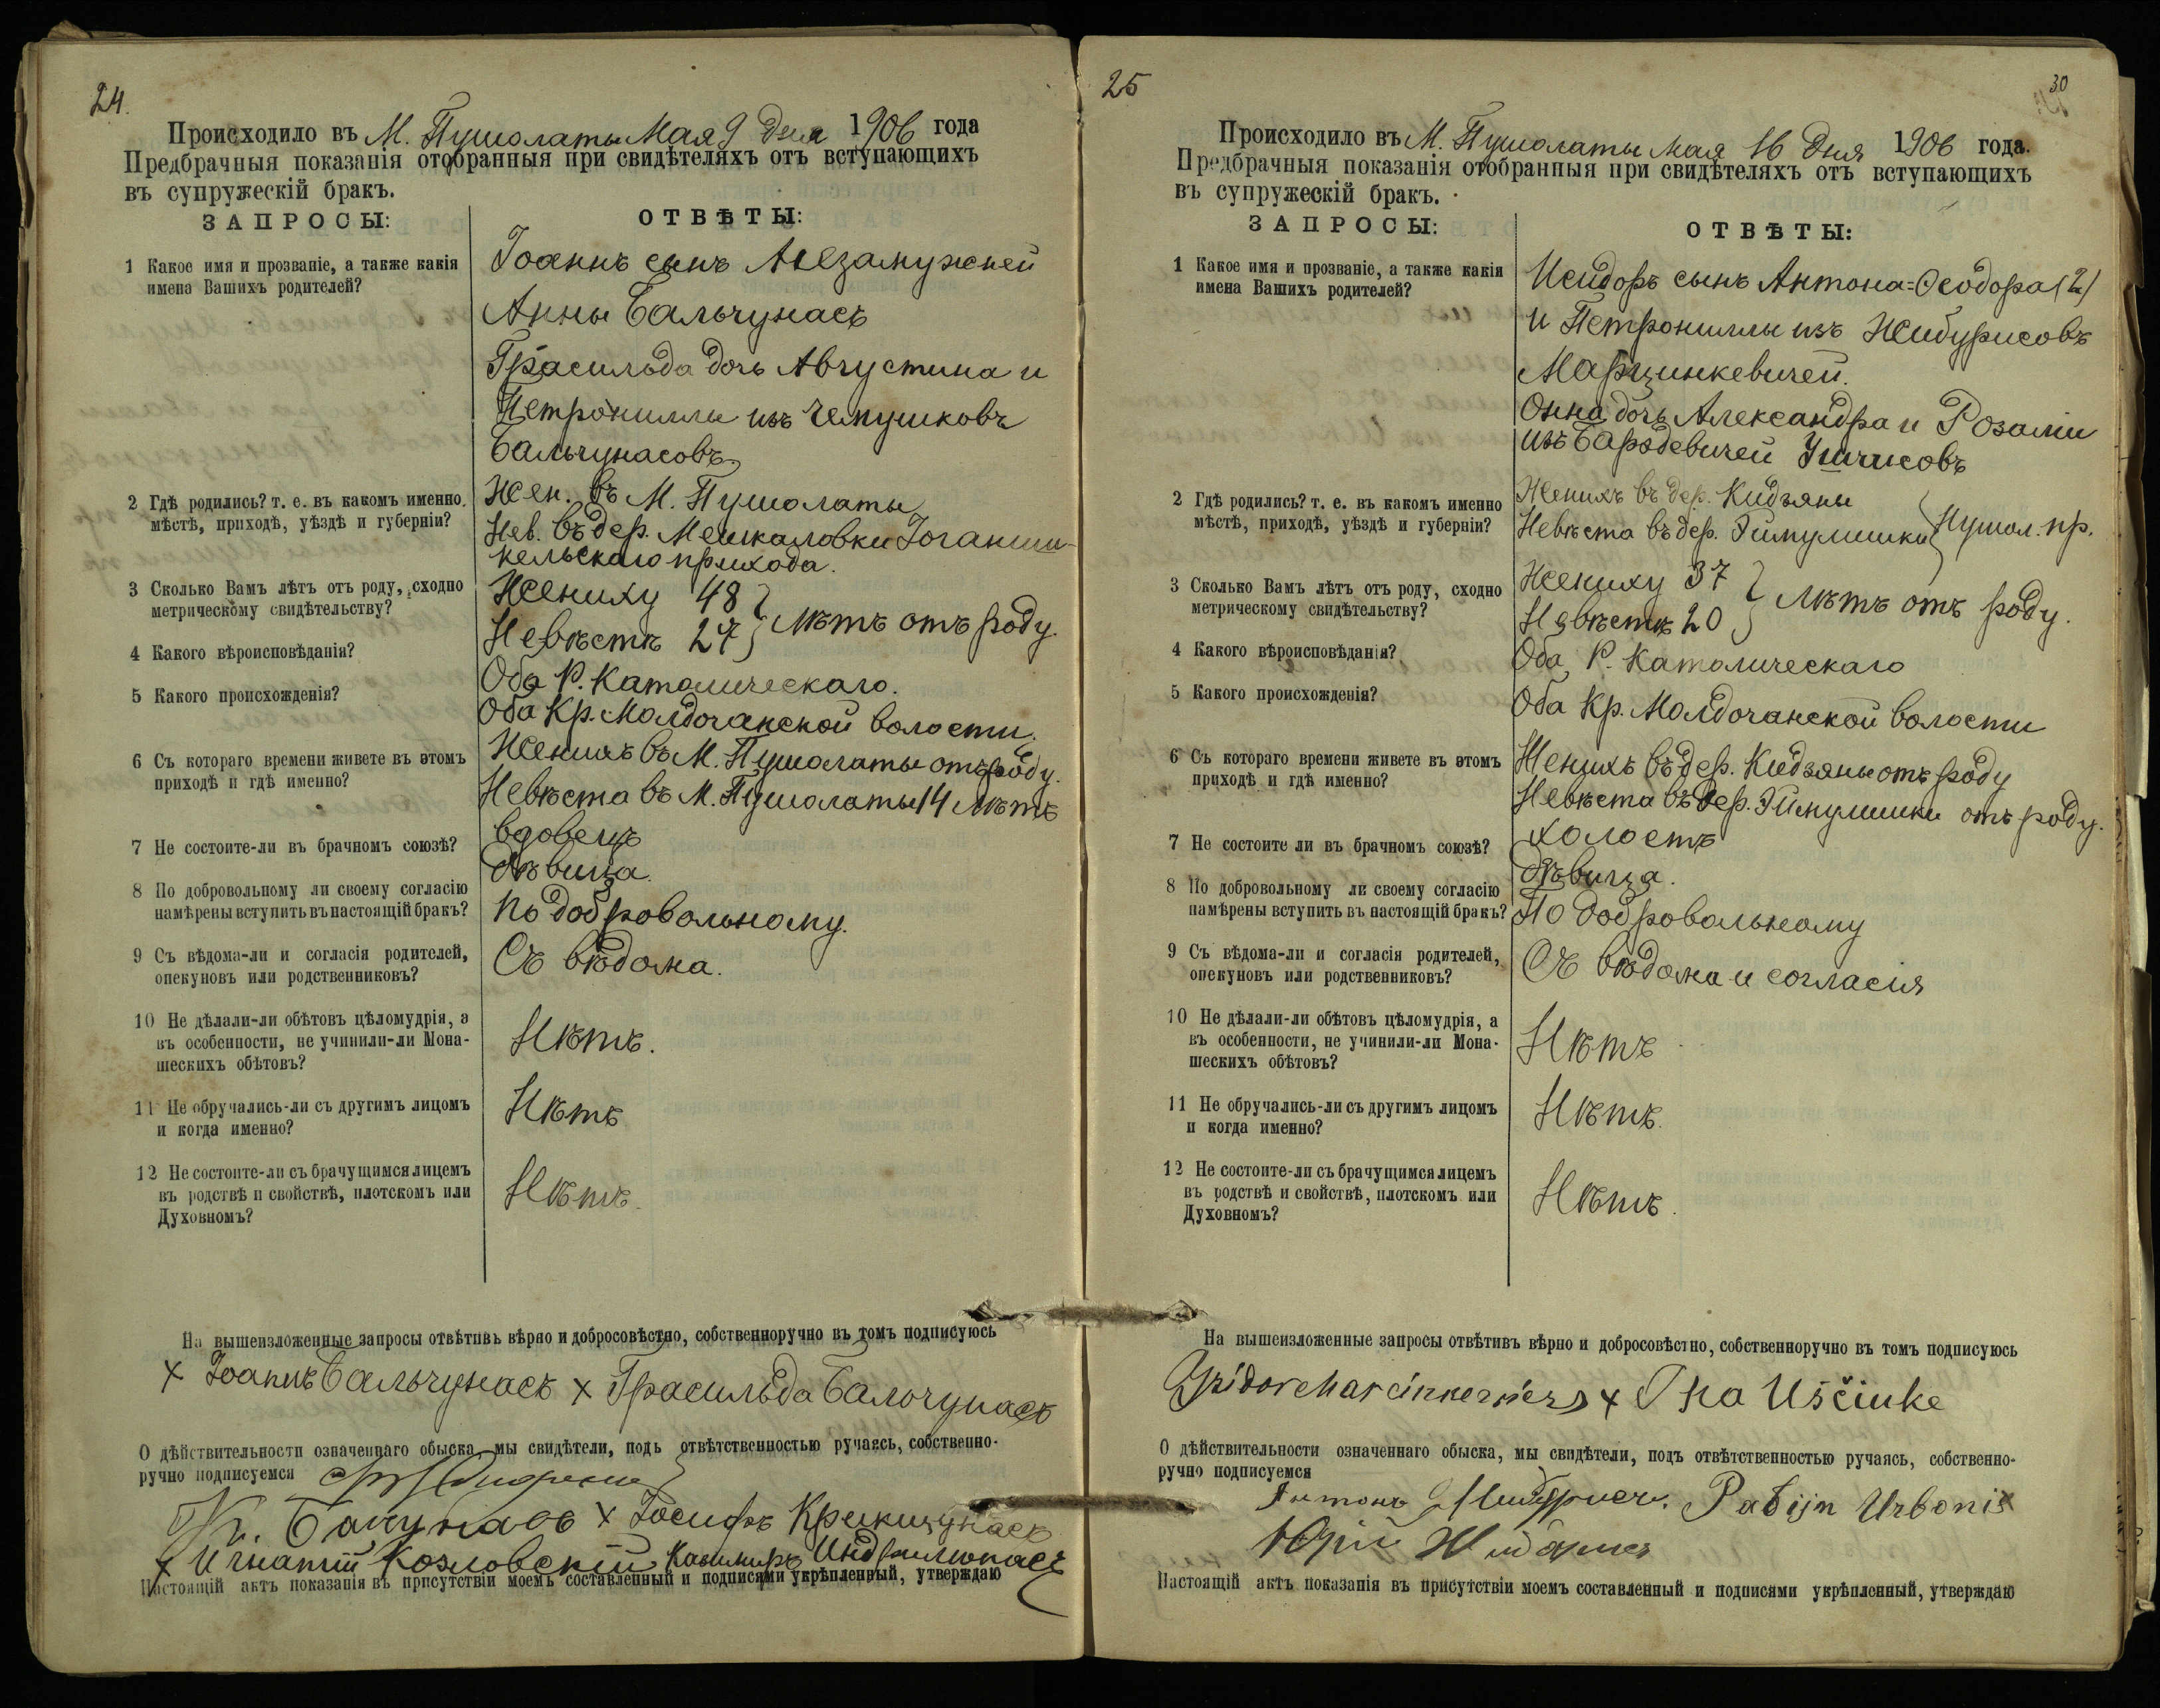 24.
Происходило въ М. Пушолаты Мая 9 дня 1906 года
Предбрачныя показанія отобранныя при свидѣтеляхъ отъ вступающихъ
въ супружескій бракъ.
ЗАПРОСЫ:
ОТВѢТЫ:
1 Какое имя и прозваніе, а также какія
имена Вашихъ родителей?
Іоаннъ сынъ Незамужней
Анны Бальчунасъ
Грасильда дочь Августина и
Петрониллы изъ Чепушковъ
Бальчунасовъ
2 Гдѣ родились? т. е. въ какомъ именно
мѣстѣ, приходѣ, уѣздѣ и губерніи?
Жен. въ М. Пушолаты
Нев. въ дер. Мешкаловки Іоганиш-
кельскаго прихода.
3 Сколько Вамъ лѣтъ отъ роду, сходно
метрическому свидѣтельству?
Жениху 48
Невѣстѣ 27
Лѣтъ отъ роду.
4 Какого вѣроисповѣданія?
Оба Р. Католическаго.
5 Какого происхожденія?
Оба Кр. Молдочанской волости.
6 Съ котораго времени живете въ этомъ
приходѣ и гдѣ именно?
Женихъ въ М. Пушолаты отъ роду.
Невѣста въ М. Пушолаты 14 лѣтъ
7 Не состоите-ли въ брачномъ союзѣ?
вдовецъ
дѣвица.
8 По добровольному ли своему согласію
намѣрены вступить въ настоящій бракъ?
По добровольному.
9 Съ вѣдома-ли и согласія родителей,
опекуновъ или родственниковъ?
Съ вѣдома.
10 Не дѣлали-ли обѣтовъ цѣломудрія, а
въ особенности, не учинили-ли Мона-
шескихъ обѣтовъ?
Нѣтъ.
11 Не обручались-ли съ другимъ лицомъ
и когда именно?
Нѣтъ
12 Не состоите-ли съ брачущимся лицемъ
въ родствѣ и свойствѣ, плотскомъ или
Духовномъ?
Нѣтъ.
На вышеизложенные запросы отвѣтивъ вѣрно и добросовѣстно, собственноручно въ томъ подписуюсь
+ Іоаннъ Бальчунасъ + Грасильда Бальчунасъ
О дѣйствительности означеннаго обыска, мы свидѣтели, подъ отвѣтственностью ручаясь, собственно-
ручно подписуемся
+ Іосифъ Крикщунасъ
+ Игнатій Козловскій Казимиръ
Настоящій актъ показанія въ присутствіи моемъ составленный и подписями укрѣпленный, утверждаю
25
30
Происходило въ М. Пушолаты мая 16 дня 1906 года.
Предбрачныя показанія отобранныя при свидѣтеляхъ отъ вступающихъ
въ супружескій бракъ.
ЗАПРОСЫ:
ОТВѢТЫ:
1 Какое имя и прозваніе, а также какія
имена Вашихъ родителей?
Исидоръ сынъ Антона=Ѳеодора (2)
и Петрониллы изъ Жибурисовъ
Марцинкевичей.
Онна дочь Александра и Розаліи
изъ
2 Гдѣ родились? т. е. въ какомъ именно
мѣстѣ, приходѣ, уѣздѣ и губерніи?
Женихъ въ дер. Кидзяны
Невѣста въ дер.
Пушол. пр.
3 Сколько Вамъ лѣтъ отъ роду, сходно
метрическому свидѣтельству?
Жениху 37
Невѣстѣ 20
Лѣтъ отъ роду.
4 Какого вѣроисповѣданія?
Оба Р. Католическаго
5 Какого происхожденія?
Оба Кр. Молдочанской волости
6 Съ котораго времени живете въ этомъ
приходѣ и гдѣ именно?
Женихъ въ дер. Кидзяны отъ роду
Невѣста въ дер. отъ роду.
7 Не состоите ли въ брачномъ союзѣ?
холостъ
дѣвица.
8 По добровольному ли своему согласію
намѣрены вступить въ настоящій бракъ?
По добровольному
9 Съ вѣдома-ли и согласія родителей,
опекуновъ или родственниковъ?
Съ вѣдома и согласія
10 Не дѣлали-ли обѣтовъ цѣломудрія, а
въ особенности, не учинили-ли Мона-
шескихъ обѣтовъ?
Нѣтъ
11 Не обручались-ли съ другимъ лицомъ
и когда именно?
Нѣтъ.
12 Не состоите-ли съ брачущимся лицемъ
въ родствѣ и свойствѣ, плотскомъ или
Духовномъ?
Нѣтъ.
На вышеизложенные запросы отвѣтивъ вѣрно и добросовѣстно, собственноручно въ томъ подписуюсь
+ Ona Uščiuke
О дѣйствительности означеннаго обыска, мы свидѣтели, подъ отвѣтственностью ручаясь, собственно-
ручно подписуемся
Антонъ Pabijn Urbonis
Юрій
Настоящій актъ показанія въ присутствіи моемъ составленный и подписями укрѣпленный, утверждаю